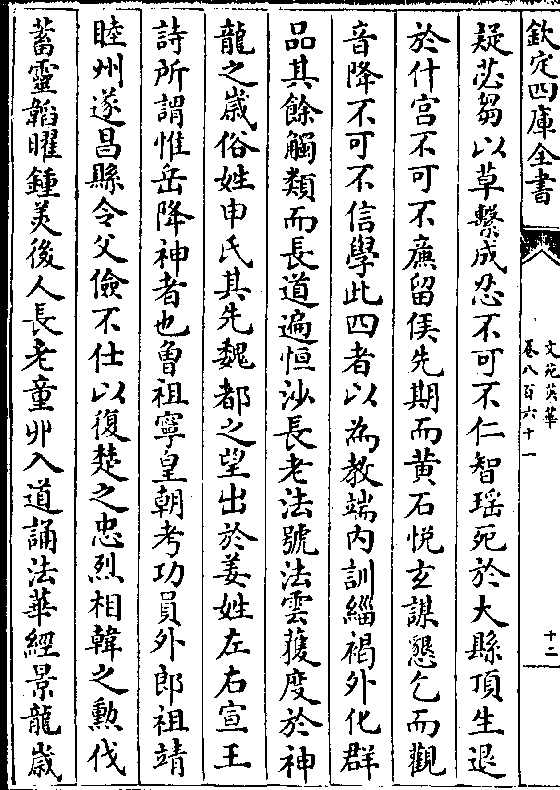 欽定四庫全書
文苑英華
卷八百六十一
十二
疑苾芻以草繫成忍不可不仁智瑶死於大縣頂生退
於什宫不可不亷留侯先期而黄石悦玄謀懇乞而觀
音降不可不信學此四者以為教端内訓緇褐外化群
品其餘觸類而長道遍恒沙長老法號法雲獲度於神
龍之歲俗姓申氏其先魏都之望出於姜姓左右宣王
詩所謂惟岳降神者也曾祖寧皇朝考功員外郎祖靖
睦州遂昌縣令父儉不仕以復楚之忠烈相韓之勲伐
蓄靈韜曜鍾美後人長老童丱入道誦法華經景龍歲